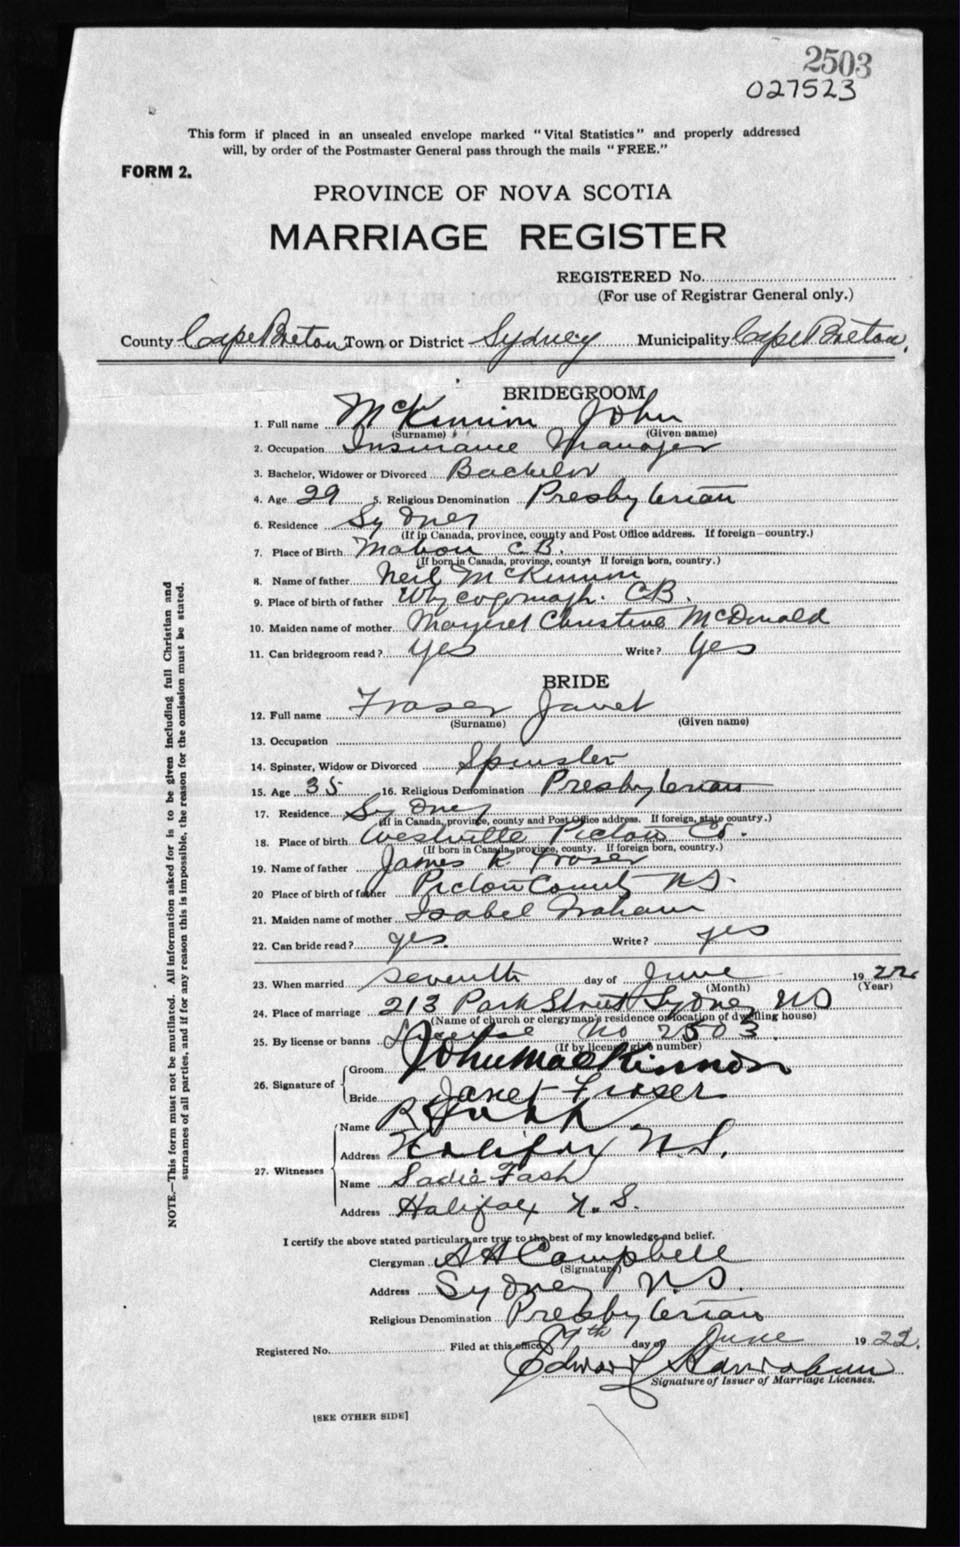 2503
027523
This form if placed in an unsealed envelope marked "Vital Statistics" and properly addressed
will, by order of the Postmaster General pass through the mails "FREE."
FORM 2.
PROVINCE OF NOVA SCOTIA
MARRIAGE REGISTER
REGISTERED No.
(For use of Registrar General only.)
County Cape Breton Town or District Sydney Municipality Cape Breton.
BRIDEGROOM
1. Full name McKinnon John
(Surname) (Given name)
2. Occupation Insurance Manager
3. Bachelor, Widower or Divorced Bachelor
4. Age 29 5. Religious Denomination Presbyterian
6. Residence Sydney
(If in Canada, province, county and Post Office address. If foreign—country.)
7. Place of Birth Mabou C.B.
(If born in Canada, province, county. If foreign born, country.)
8. Name of father Neil McKinnon
9. Place of birth of father Whycogomagh. CB.
10. Maiden name of mother Margaret Christina McDonald
11. Can bridegroom read? Yes Write? Yes
BRIDE
12. Full name Fraser Janet
(Surname) (Given name)
13. Occupation
14. Spinster, Widow or Divorced Spinster
15. Age 35 16. Religious Denomination Presbyterian
17. Residence Sydney
(If in Canada, province, county and Post Office address. If foreign, state country.)
18. Place of birth Westville Pictou Co.
(If born in Canada, province, county. If foreign born, country.)
19. Name of father James R Fraser
20 Place of birth of father Pictou County NS.
21. Maiden name of mother Isabel Graham
22. Can bride read? yes. Write? yes
23. When married seventh day of June 1922
(Month) (Year)
24. Place of marriage 213 Park Street Sydney NS
(Name of church or clergyman's residence or location of dwelling house)
25. By license or banns License No 2503
(If by license give number)
26. Signature of Groom John MacKinnon
Bride Janet Fraser
27. Witnesses Name R
Address Halifax N.S.
Name Sadie Fash
Address Halifax N.S.
I certify the above stated particulars are true to the best of my knowledge and belief.
Clergyman A A Campbell
(Signature)
Address Sydney N.S.
Religious Denomination Presbyterian
Registered No. Filed at this office 7th day of June 1922.
Edward
Signature of Issuer of Marriage Licenses.
[SEE OTHER SIDE]
NOTE.—This form must not be mutilated. All information asked for is to be given including full Christian and
surnames of all parties, and if for any reason this is impossible, the reason for the omission must be stated.